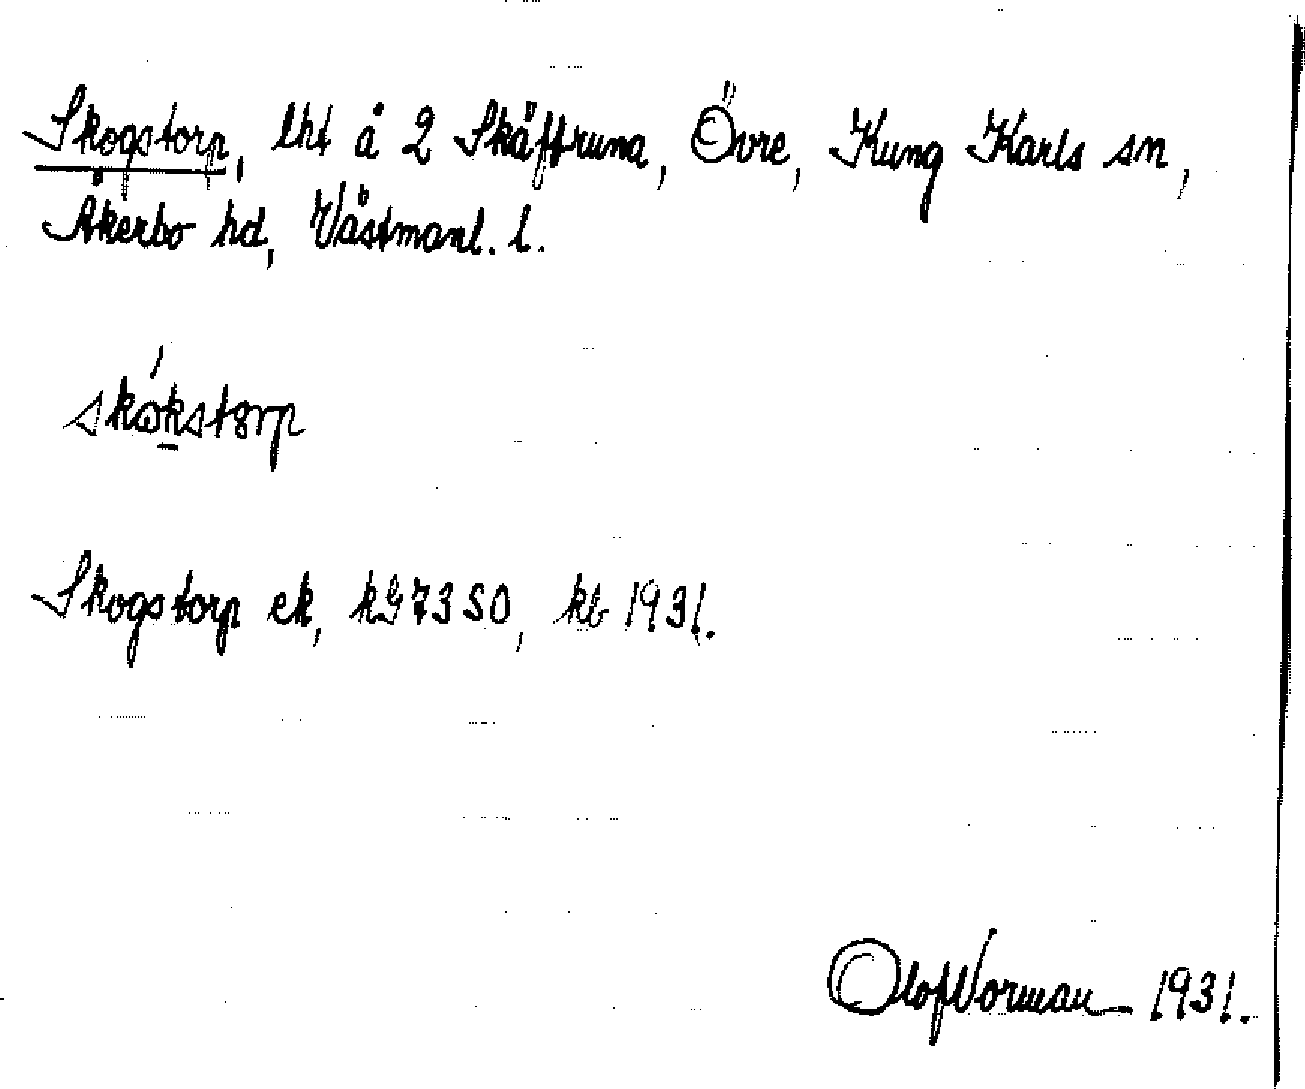 Skogstorp, lht å 2 Skäftruna, Övre, Kung Karls sn,
Åkerbo hd, Västmanl. l.
skókstorp
Skogstorp ek, kG7350, kb 1931.
Olof Norman 1931.